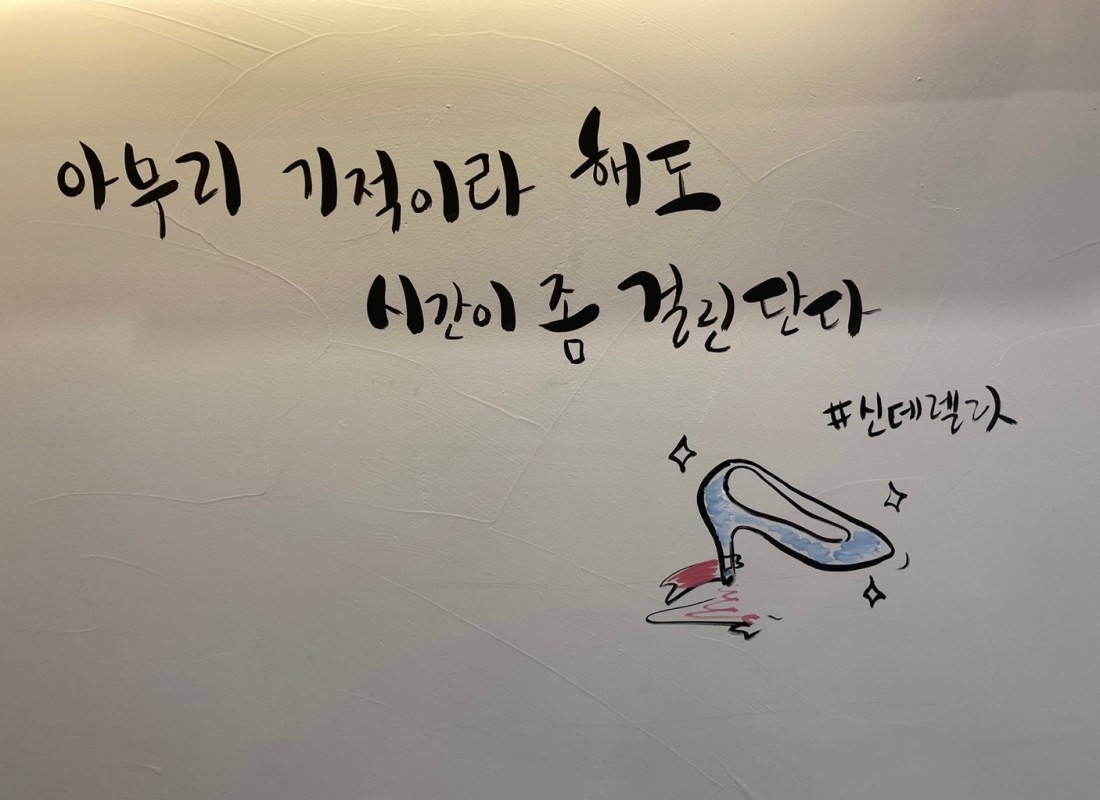 아무리 기적이라 해도
시간이 좀 걸린단다
#신데렐라